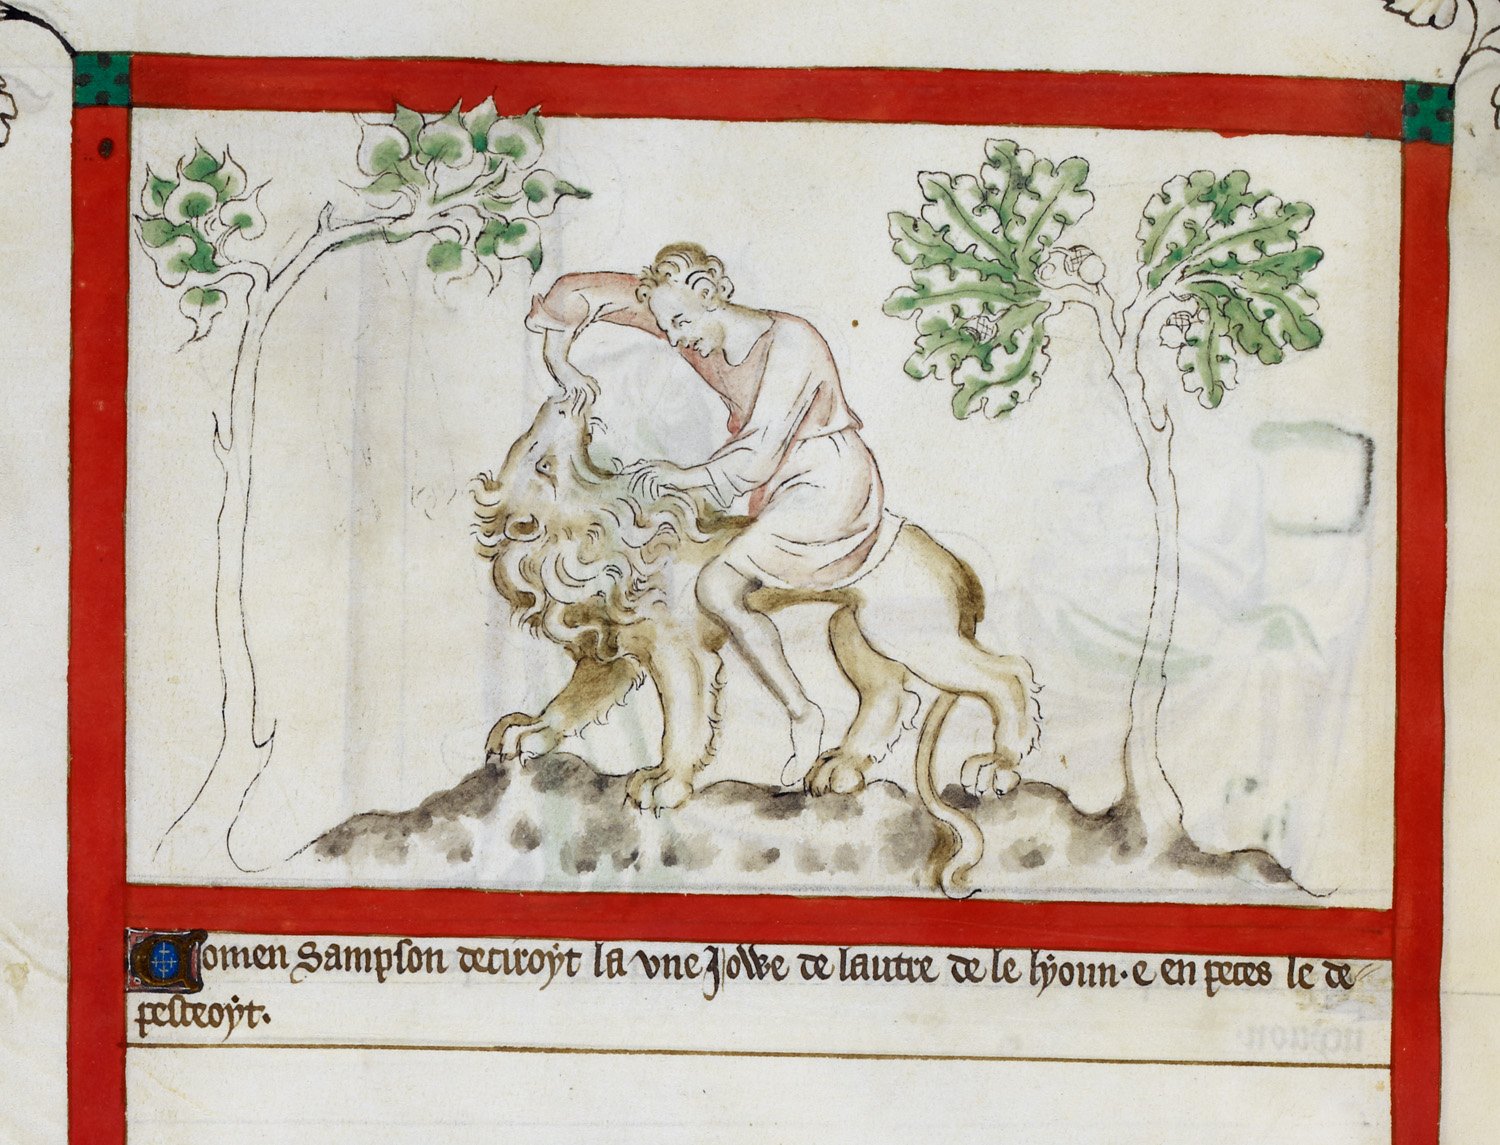 Comen Sampson deciroyt la vne Jowe de lautre de le lyoun · e en peces le de
pesceoyt.